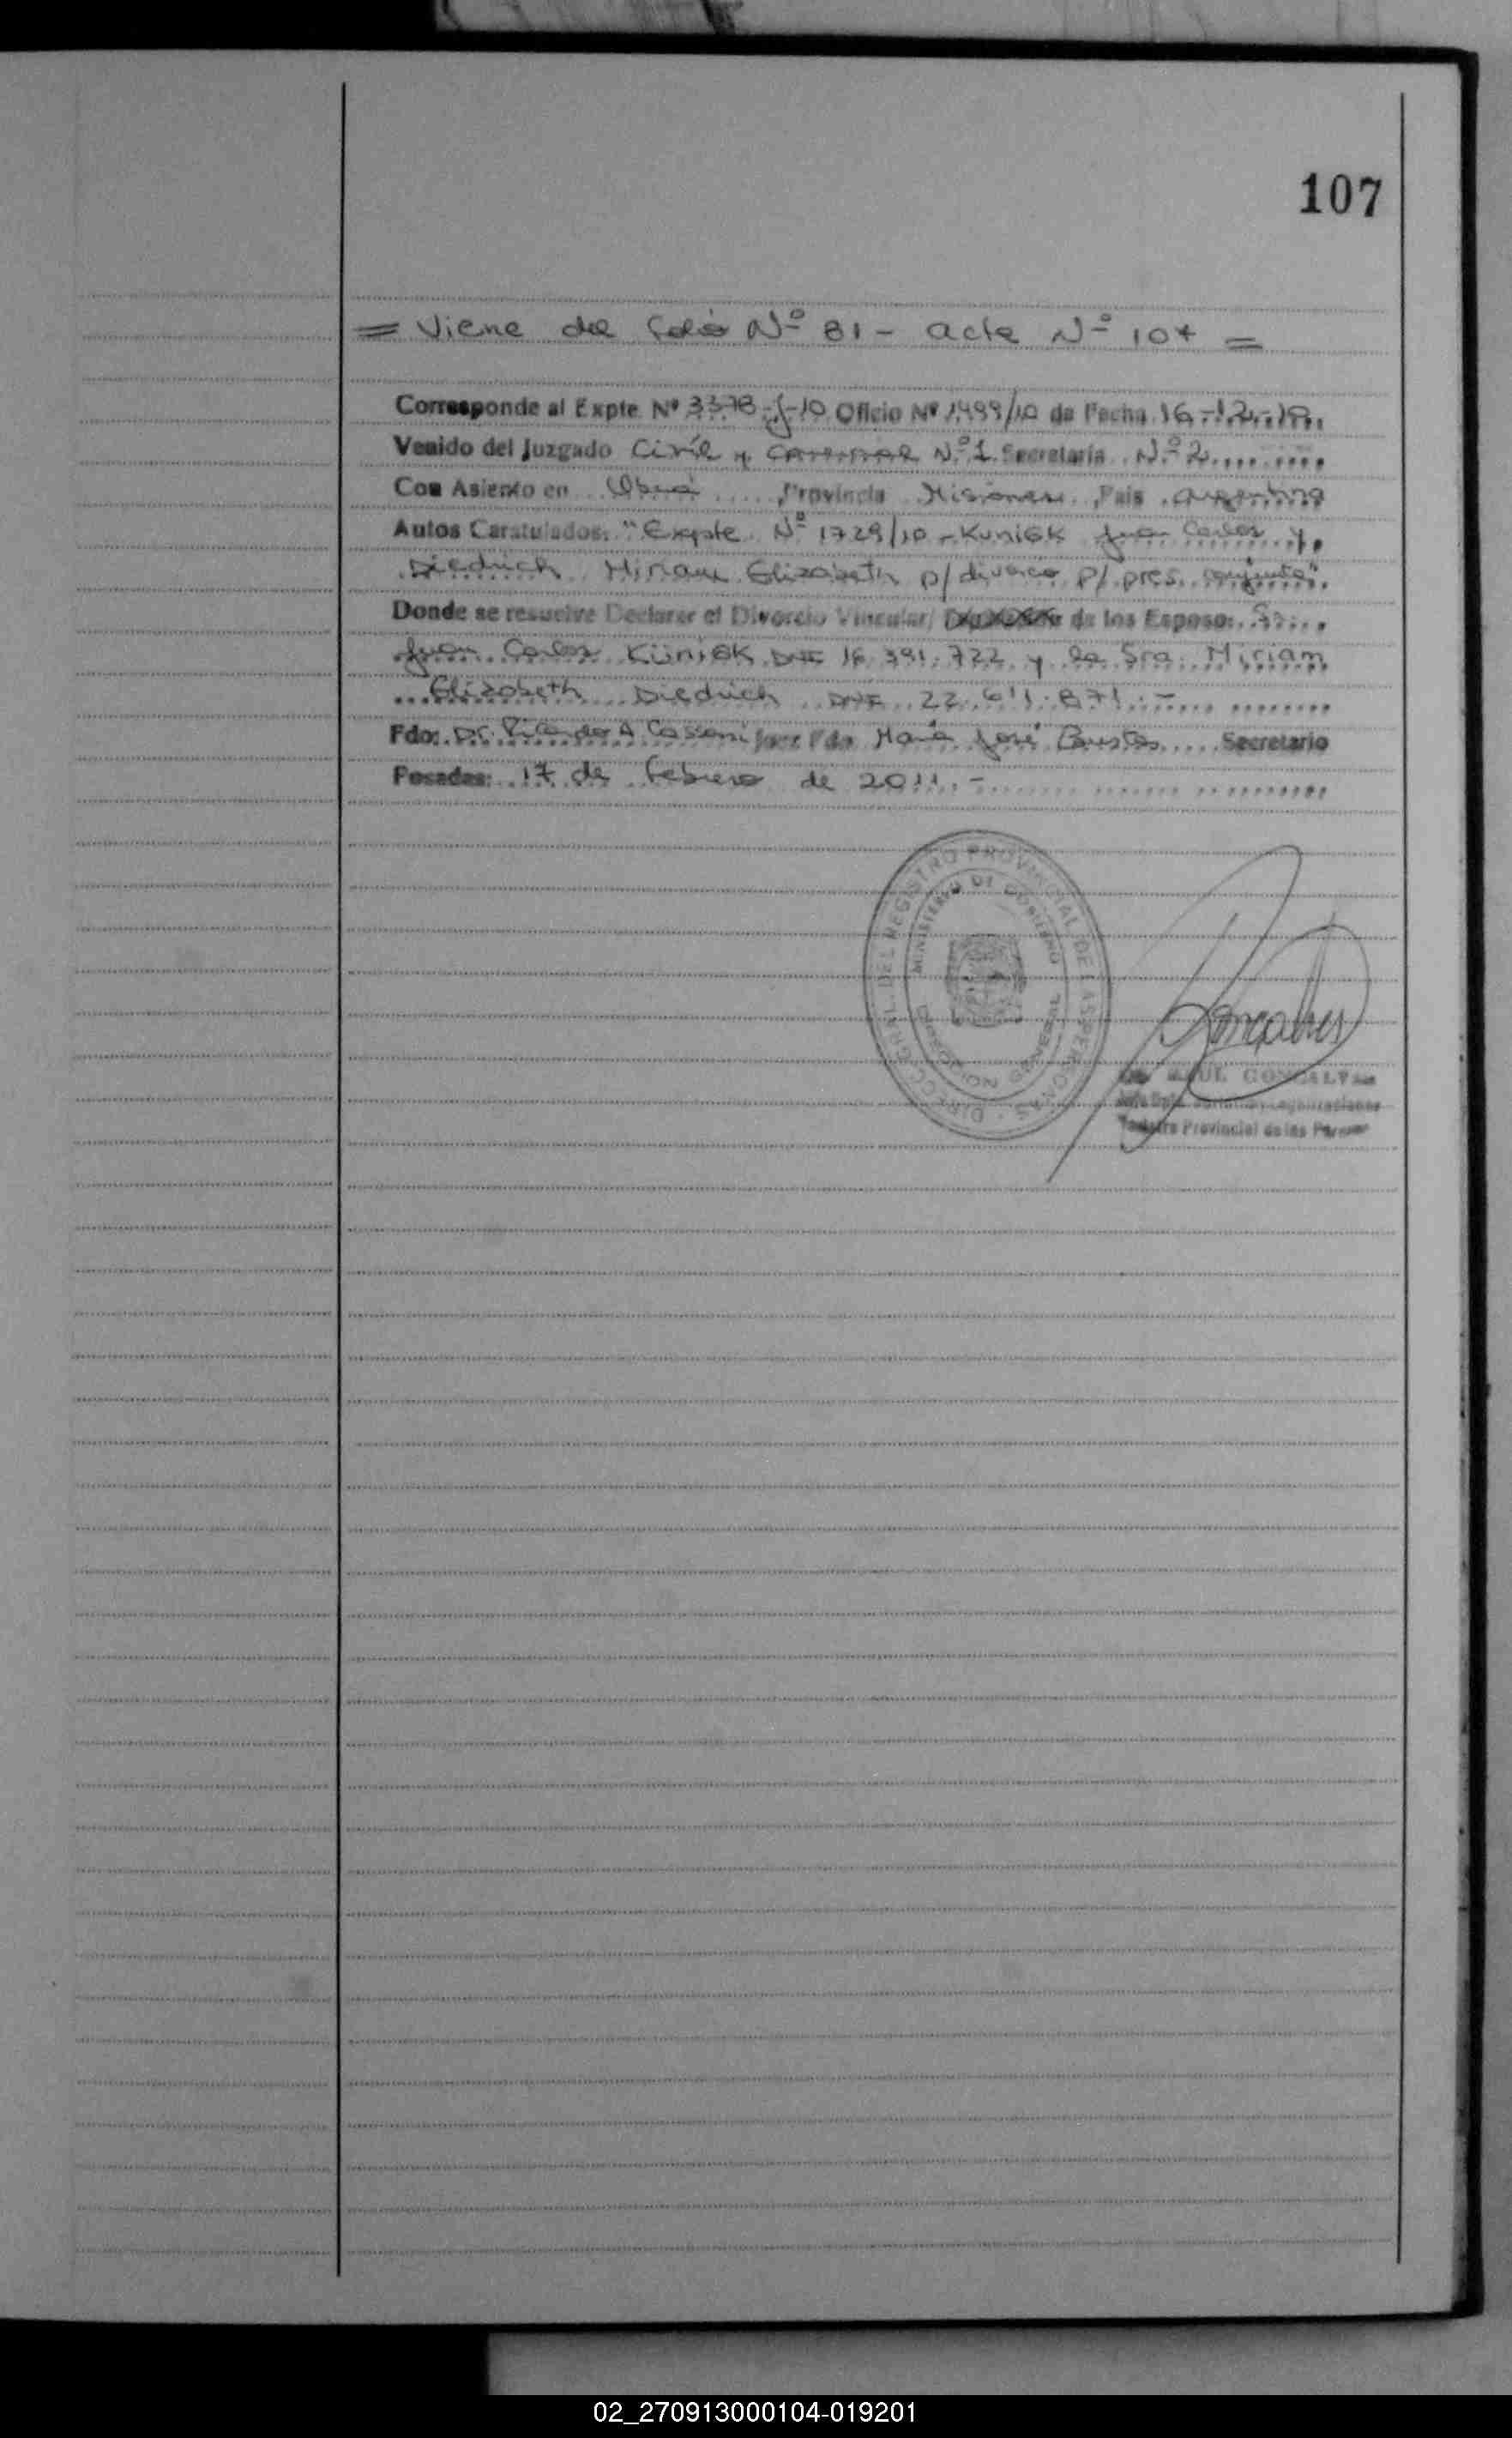 107
= Viene del folio Nº 81 - acta Nº 107 =
Corresponde al Expte. Nº 3378-J-10 Oficio Nº 1499/10 de Fecha 16-12-10
Venido del Juzgado Civil y Nº 1 Secretaría Nº 2
Con Asiento en Oberá Provincia Misiones País Argentina
Autos Caratulados: "Expte. Nº 1729/10 - Kuniek Juan Carlos y
Diedrich Miriam Elizabeth p/ divorcio p/ pres. conjunta"
Donde se resuelve Declarar el Divorcio Vincular/ de los Esposos Sr.
Juan Carlos Küniek DNI 16.391.722 y la Sra. Miriam
Elizabeth Diedrich DNI 22.611.871.-
Fdo: Dr. Ricardo A Juez Fdo María José Secretario
Posadas: 17 de febrero de 2011.-
DIRECC. GRAL. DEL REGISTRO PROVINCIAL DE LAS PERSONAS
MINISTERIO DE GOBIERNO
Goncalves
RAUL GONCALVES
Registro Provincial de las Personas
02_270913000104-019201